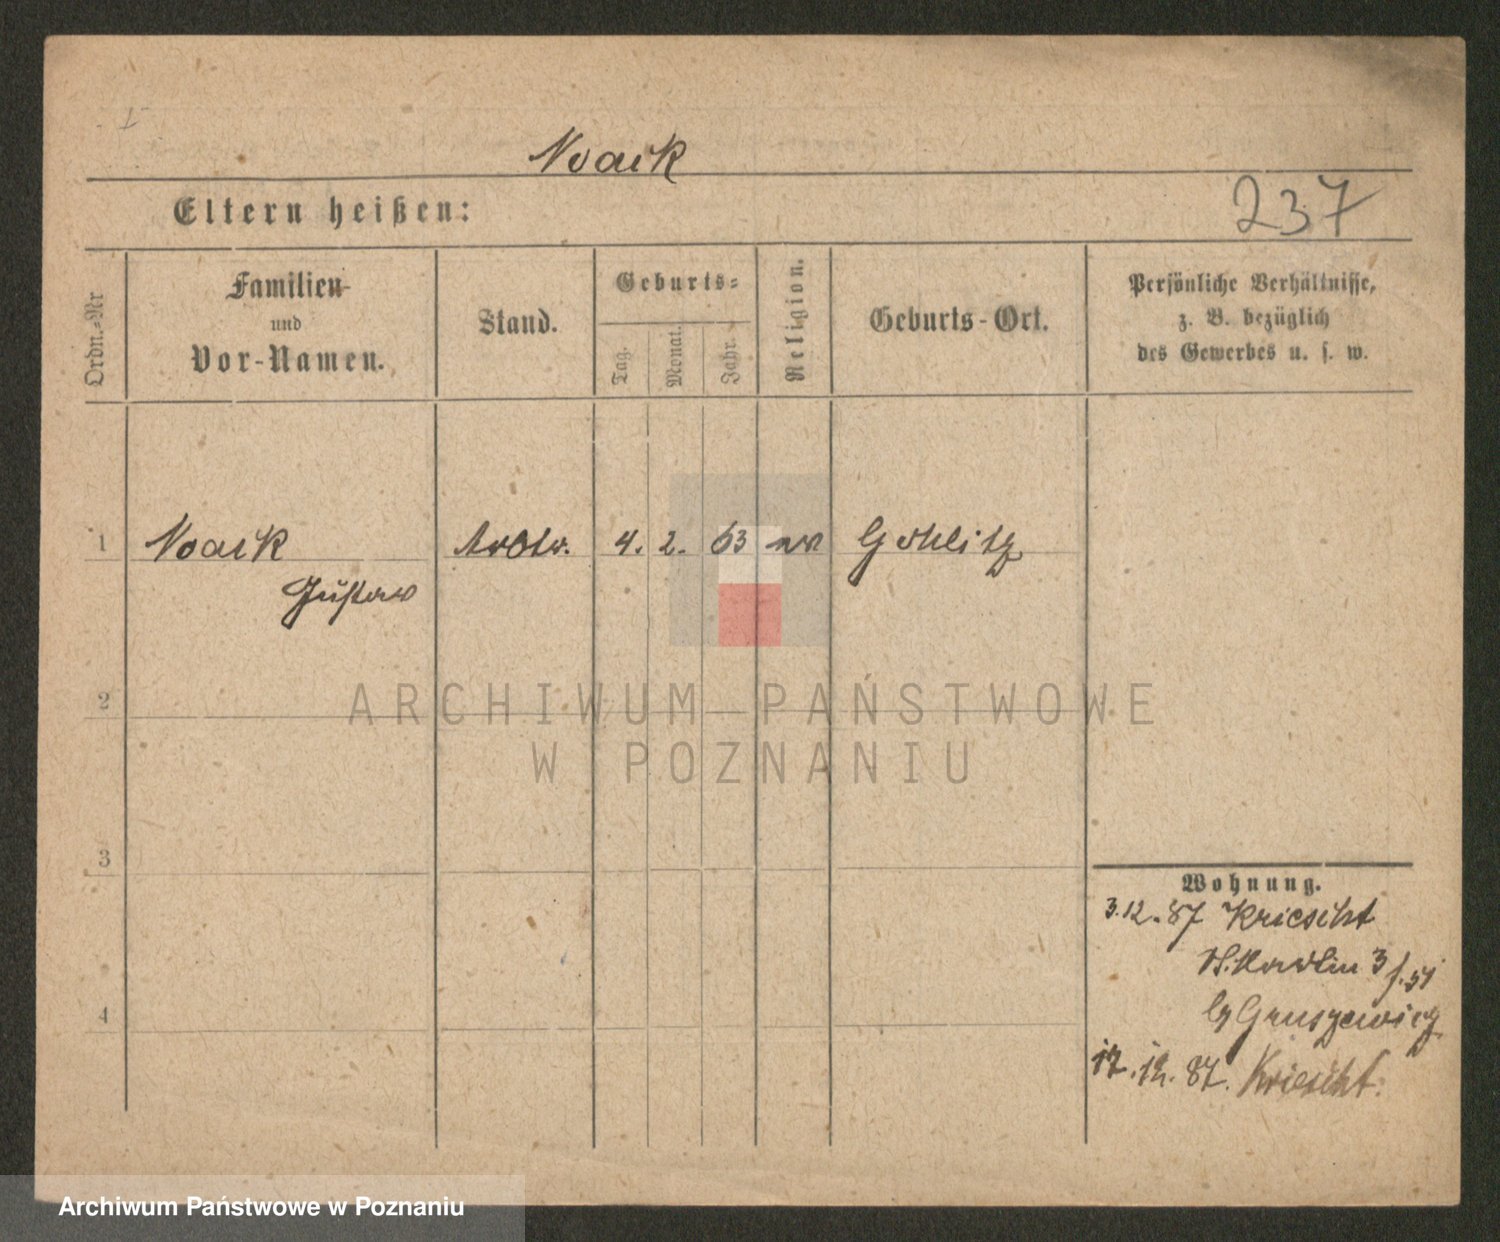 Noack
Eltern heißen:
237
Ordn.-Nr
Familien-
und
Vor-Namen.
Stand.
Geburts-
Tag.
Monat.
Jahr.
Religion.
Geburts-Ort.
Persönliche Verhältnisse,
z. B. bezüglich
des Gewerbes u. s. w.
1 Noack 4. 2. 63 ev
Gustav
ARCHIWUM PAŃSTWOWE
W POZNANIU
2
3
4
Wohnung.
3.12.87 Kriescht
17.12.87. Kriescht.
Archiwum Państwowe w Poznaniu